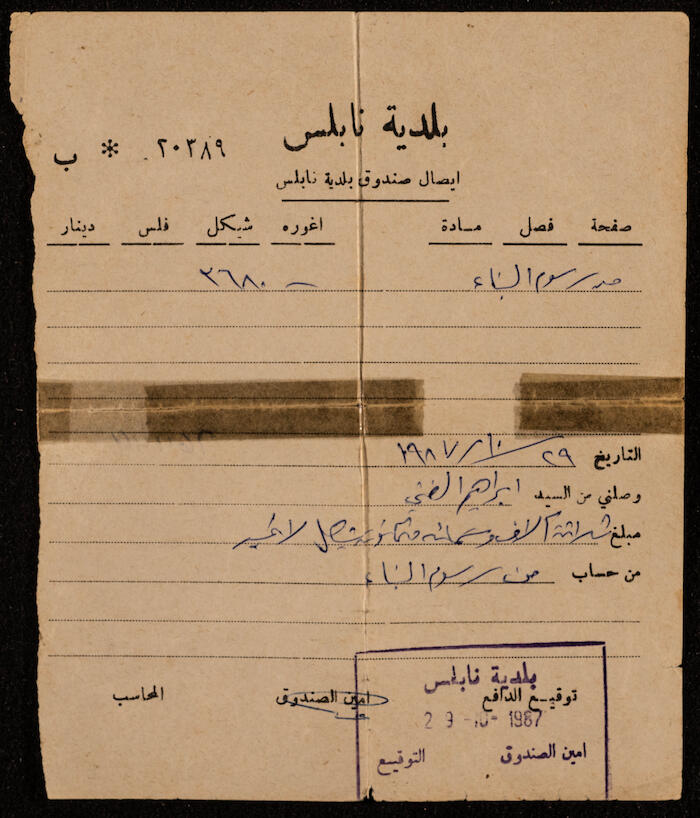 بلدية نابلس
٢٠٣٨٩ * ب
ايصال صندوق بلدية نابلس
صفحة فصل مادة اغوره شيكل فلس دينار
رسوم البناء ٣٦٨٠ —
التاريخ ٢٩ / ١٠ / ١٩٨٧
وصلني من السيد ابراهيم
مبلغ ثلاثة آلاف وستمائه وثمانون شيكل لا غير
من حساب من رسوم البناء
بلدية نابلس
توقيع الدافع امين الصندوق المحاسب
29-10-1987
امين الصندوق التوقيع